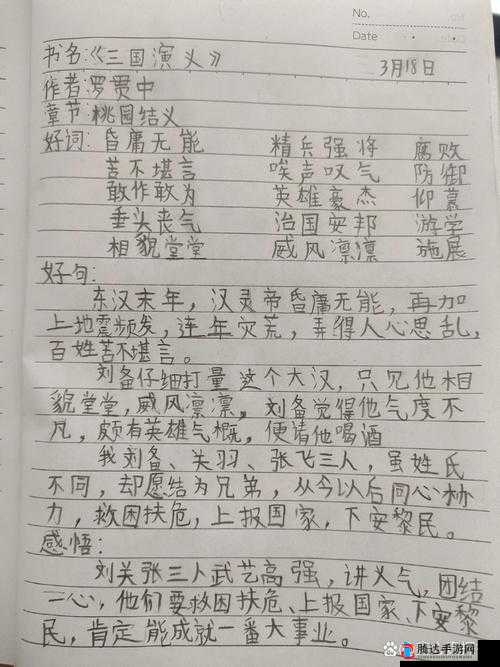 No.
Date
书名:《三国演义》 3月18日
作者:罗贯中
章节:桃园结义
好词: 昏庸无能 精兵强将 腐败
苦不堪言 唉声叹气 防御
敢作敢为 英雄豪杰 仰慕
垂头丧气 治国安邦 游学
相貌堂堂 威风凛凛 施展
好句:
东汉末年,汉灵帝昏庸无能,再加
上地震频发,连年灾荒,弄得人心思乱,
百姓苦不堪言。
刘备仔细打量这个大汉,只见他相
貌堂堂,威风凛凛,刘备觉得他气度不
凡,颇有英雄气概,便请他喝酒
我刘备、关羽、张飞三人,虽姓氏
不同,却愿结为兄弟,从今以后同心协
力,救困扶危,上报国家,下安黎民。
感悟:
刘关张三人武艺高强,讲义气,团结
一心,他们要救困扶危、上报国家、下安黎
民,肯定能成就一番大事业。
腾达手游网